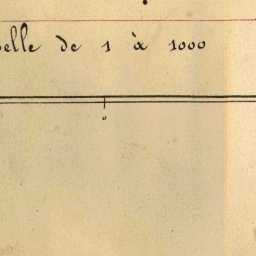 elle de 1 à 1000
0